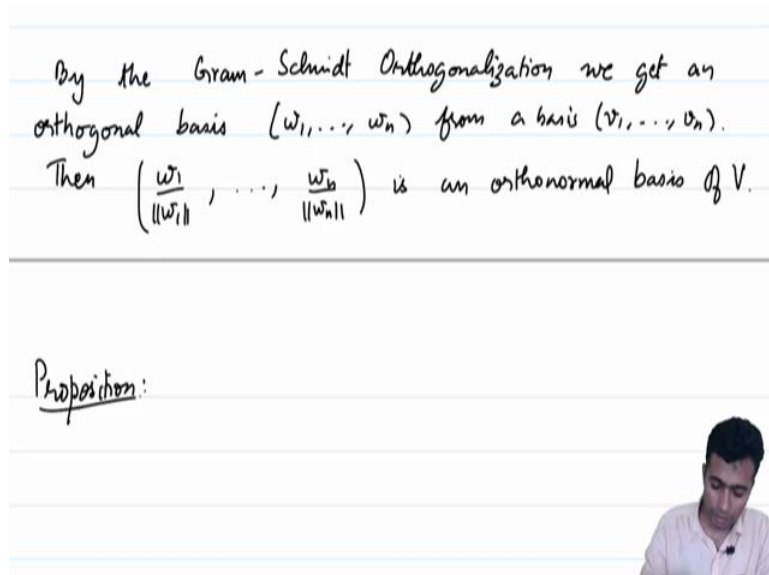 By the Gram-Schmidt Orthogonalization we get an
orthogonal basis (w₁, ..., wₙ) from a basis (v₁, ..., vₙ).
Then (w₁/||w₁||, ..., wₙ/||wₙ||) is an orthonormal basis of V.
Proposition: